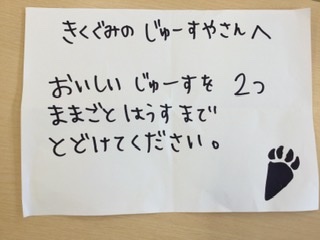 きくぐみの じゅーすやさんへ
おいしい じゅーすを 2つ
ままごとはうすまで
とどけてください。